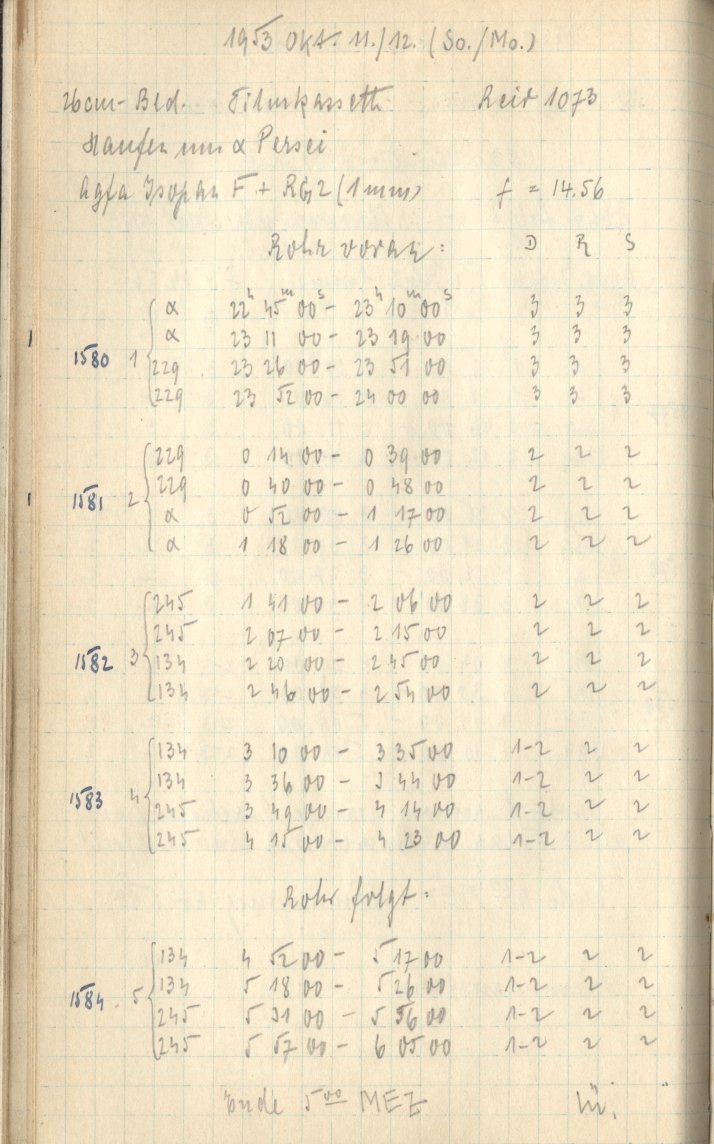 1953 Okt. 11./12. (So./Mo.)
26cm-Bld. Filmkassette Reid 1073
Haufen um α Persei
Agfa Isopan F + RG2 (1mm) f = 14.56
Rohr voran: D R S
α 22h 45m 00s - 23h 10m 00s 3 3 3
1 α 23 11 00 - 23 19 00 3 3 3
1580 1 229 23 26 00 - 23 51 00 3 3 3
229 23 52 00 - 24 00 00 3 3 3
229 0 14 00 - 0 39 00 2 2 2
229 0 40 00 - 0 48 00 2 2 2
1 1581 2 α 0 52 00 - 1 17 00 2 2 2
α 1 18 00 - 1 26 00 2 2 2
245 1 41 00 - 2 06 00 2 2 2
245 2 07 00 - 2 15 00 2 2 2
1582 3 134 2 20 00 - 2 45 00 2 2 2
134 2 46 00 - 2 54 00 2 2 2
134 3 10 00 - 3 35 00 1-2 2 2
134 3 36 00 - 3 44 00 1-2 2 2
1583 4 245 3 49 00 - 4 14 00 1-2 2 2
245 4 15 00 - 4 23 00 1-2 2 2
Rohr folgt:
134 4 52 00 - 5 17 00 1-2 2 2
134 5 18 00 - 5 26 00 1-2 2 2
1584 5 245 5 31 00 - 5 56 00 1-2 2 2
245 5 57 00 - 6 05 00 1-2 2 2
Ende 5 00 MEZ